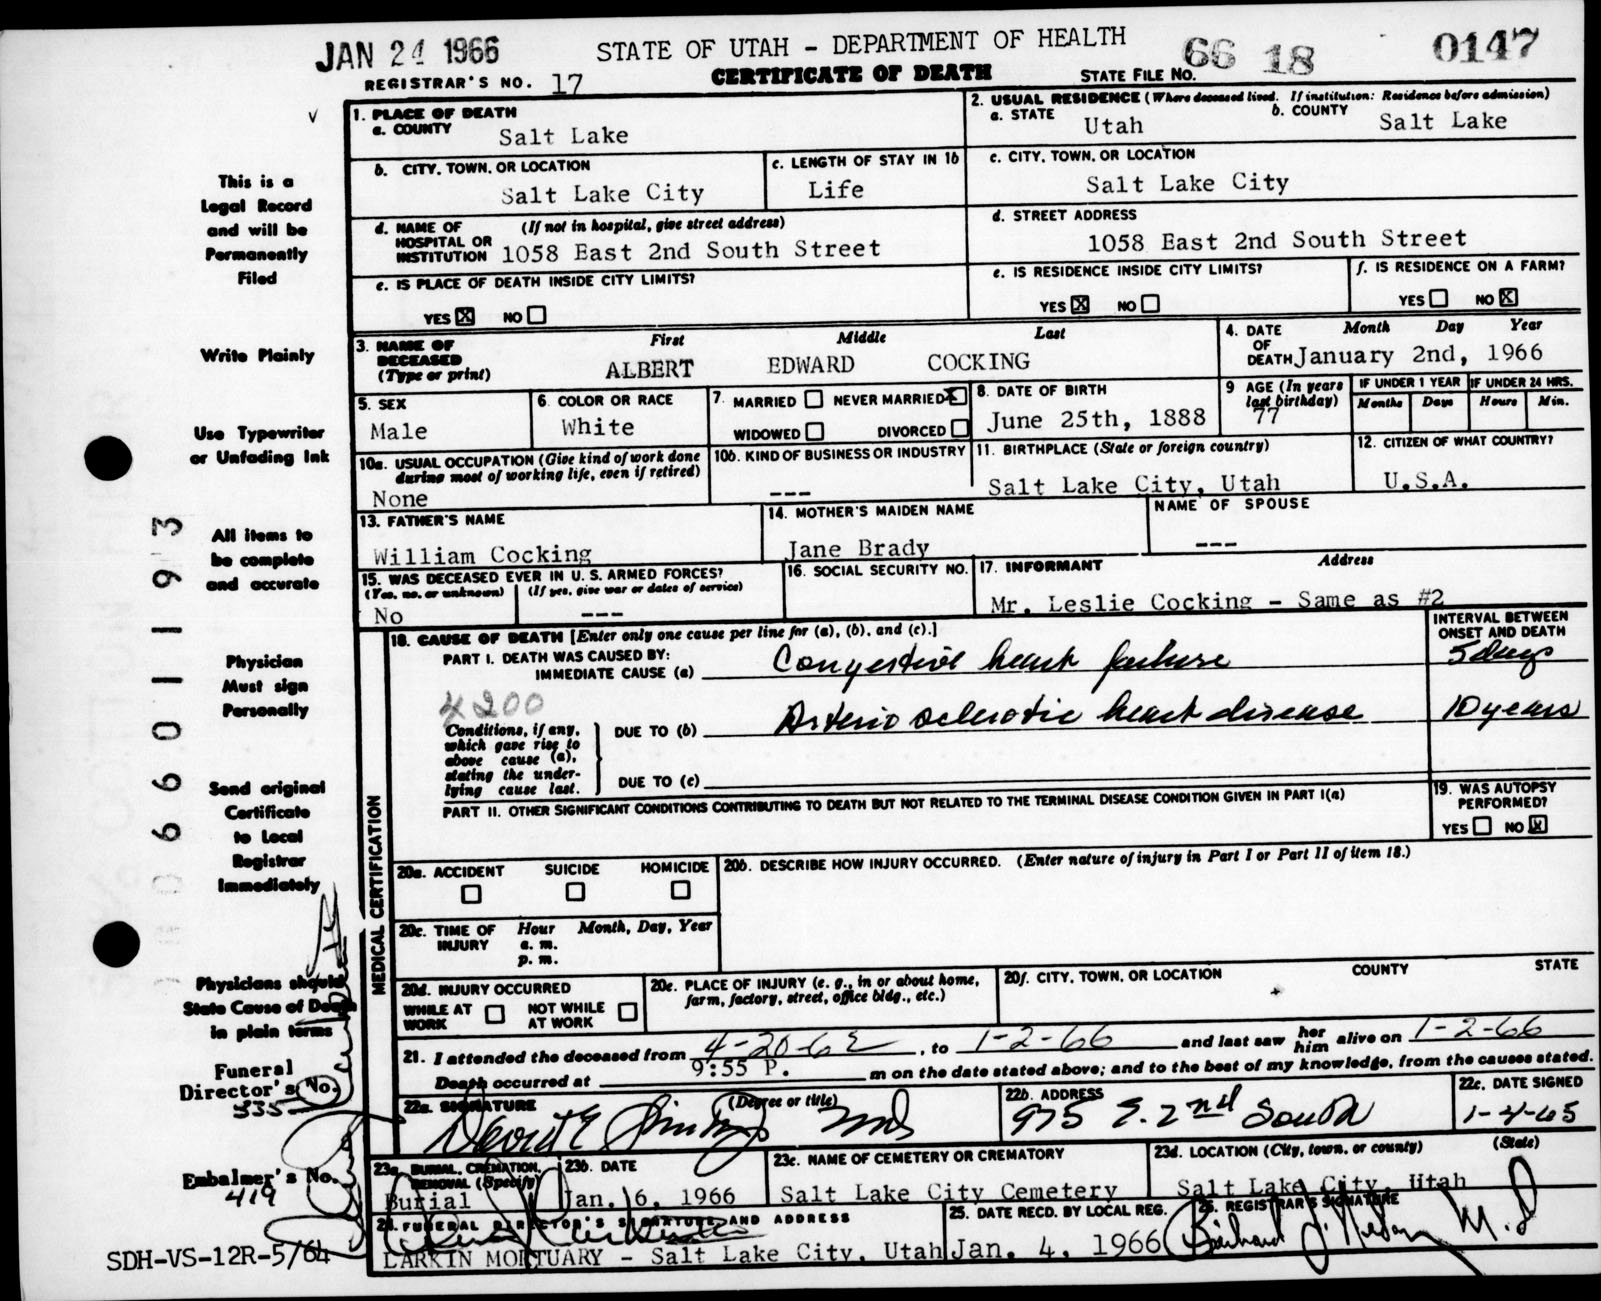 JAN 24 1966 STATE OF UTAH - DEPARTMENT OF HEALTH 66 18 0147
REGISTRAR'S NO. 17 CERTIFICATE OF DEATH STATE FILE NO.
1. PLACE OF DEATH
a. COUNTY Salt Lake
2. USUAL RESIDENCE (Where deceased lived. If institution: Residence before admission)
a. STATE Utah b. COUNTY Salt Lake
b. CITY, TOWN, OR LOCATION Salt Lake City
c. LENGTH OF STAY IN 1b Life
c. CITY, TOWN, OR LOCATION Salt Lake City
d. NAME OF (If not in hospital, give street address)
HOSPITAL OR
INSTITUTION 1058 East 2nd South Street
d. STREET ADDRESS
1058 East 2nd South Street
e. IS PLACE OF DEATH INSIDE CITY LIMITS?
YES X NO
e. IS RESIDENCE INSIDE CITY LIMITS?
YES X NO
f. IS RESIDENCE ON A FARM?
YES NO X
3. NAME OF DECEASED (Type or print)
First Middle Last
ALBERT EDWARD COCKING
4. DATE OF DEATH Month Day Year
January 2nd, 1966
5. SEX
Male
6. COLOR OR RACE
White
7. MARRIED NEVER MARRIED X
WIDOWED DIVORCED
8. DATE OF BIRTH
June 25th, 1888
9 AGE (In years last birthday)
77
IF UNDER 1 YEAR IF UNDER 24 HRS.
Months Days Hours Min.
10a. USUAL OCCUPATION (Give kind of work done
during most of working life, even if retired)
None
10b. KIND OF BUSINESS OR INDUSTRY
---
11. BIRTHPLACE (State or foreign country)
Salt Lake City, Utah
12. CITIZEN OF WHAT COUNTRY?
U.S.A.
13. FATHER'S NAME
William Cocking
14. MOTHER'S MAIDEN NAME
Jane Brady
NAME OF SPOUSE
---
15. WAS DECEASED EVER IN U.S. ARMED FORCES?
(Yes, no, or unknown) (If yes, give war or dates of service)
No ---
16. SOCIAL SECURITY NO.
17. INFORMANT Address
Mr. Leslie Cocking - Same as #2
18. CAUSE OF DEATH [Enter only one cause per line for (a), (b), and (c).]
INTERVAL BETWEEN
ONSET AND DEATH
PART I. DEATH WAS CAUSED BY:
IMMEDIATE CAUSE (a) Congestive heart failure 5 days
4200
Conditions, if any,
which gave rise to
above cause (a),
stating the under-
lying cause last.
DUE TO (b) Arterio sclerotic heart disease 10 years
DUE TO (c)
PART II. OTHER SIGNIFICANT CONDITIONS CONTRIBUTING TO DEATH BUT NOT RELATED TO THE TERMINAL DISEASE CONDITION GIVEN IN PART I(a)
19. WAS AUTOPSY
PERFORMED?
YES NO X
MEDICAL CERTIFICATION
20a. ACCIDENT SUICIDE HOMICIDE
20b. DESCRIBE HOW INJURY OCCURRED. (Enter nature of injury in Part I or Part II of item 18.)
20c. TIME OF INJURY Hour Month, Day, Year
a. m.
p. m.
20d. INJURY OCCURRED
WHILE AT WORK NOT WHILE AT WORK
20e. PLACE OF INJURY (e. g., in or about home,
farm, factory, street, office bldg., etc.)
20f. CITY, TOWN, OR LOCATION COUNTY STATE
21. I attended the deceased from 4-20-62, to 1-2-66 and last saw her him alive on 1-2-66
Death occurred at 9:55 P. m on the date stated above; and to the best of my knowledge, from the causes stated.
22a. SIGNATURE (Degree or title)
David E
22b. ADDRESS
975 E. 2nd South
22c. DATE SIGNED
1-4-65
23a. BURIAL, CREMATION,
REMOVAL (Specify)
Burial
23b. DATE
Jan. 6, 1966
23c. NAME OF CEMETERY OR CREMATORY
Salt Lake City Cemetery
23d. LOCATION (City, town, or county) (State)
Salt Lake City, Utah
24. FUNERAL DIRECTOR'S SIGNATURE AND ADDRESS
LARKIN MORTUARY - Salt Lake City, Utah
25. DATE RECD. BY LOCAL REG.
Jan. 4, 1966
26. REGISTRAR'S SIGNATURE
M.D
This is a
Legal Record
and will be
Permanently
Filed
Write Plainly
Use Typewriter
or Unfading Ink
All items to
be complete
and accurate
Physician
Must sign
Personally
Send original
Certificate
to Local
Registrar
Immediately
Physicians should
State Cause of Death
in plain terms
Funeral
Director's No.
335
Embalmer's No.
419
SDH-VS-12R-5/64
06601193